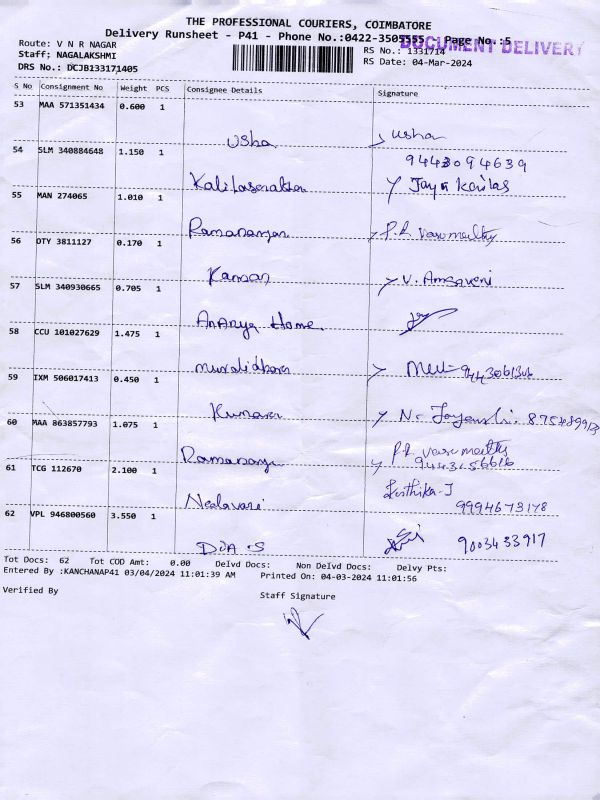 THE PROFESSIONAL COURIERS, COIMBATORE
Delivery Runsheet - P41 - Phone No.:0422-3505555 Page No.:5
DOCUMENT DELIVERY
Route: V N R NAGAR RS No.: 1331714
Staff: NAGALAKSHMI RS Date: 04-Mar-2024
DRS No.: DCJB133171405
S No Consignment No Weight PCS Consignee Details Signature
53 MAA 571351434 0.600 1
Usha usha
9443094639
54 SLM 340884648 1.150 1
Jaya Kailas
55 MAN 274065 1.010 1
P.R. Vasumathy
56 OTY 3811127 0.170 1
Kannan V. Amsaveni
57 SLM 340930665 0.705 1
Ananya Home
58 CCU 101027629 1.475 1
Muralidharan
59 IXM 506017413 0.450 1
Kumaran
60 MAA 863857793 1.075 1
P.R. Vasumathy
61 TCG 112670 2.100 1
Kirthika-J
Neelaveni 9994673178
62 VPL 946800560 3.550 1
9003433917
Tot Docs: 62 Tot COD Amt: 0.00 Delvd Docs: Non Delvd Docs: Delvy Pts:
Entered By :KANCHANAP41 03/04/2024 11:01:39 AM Printed On: 04-03-2024 11:01:56
Verified By Staff Signature